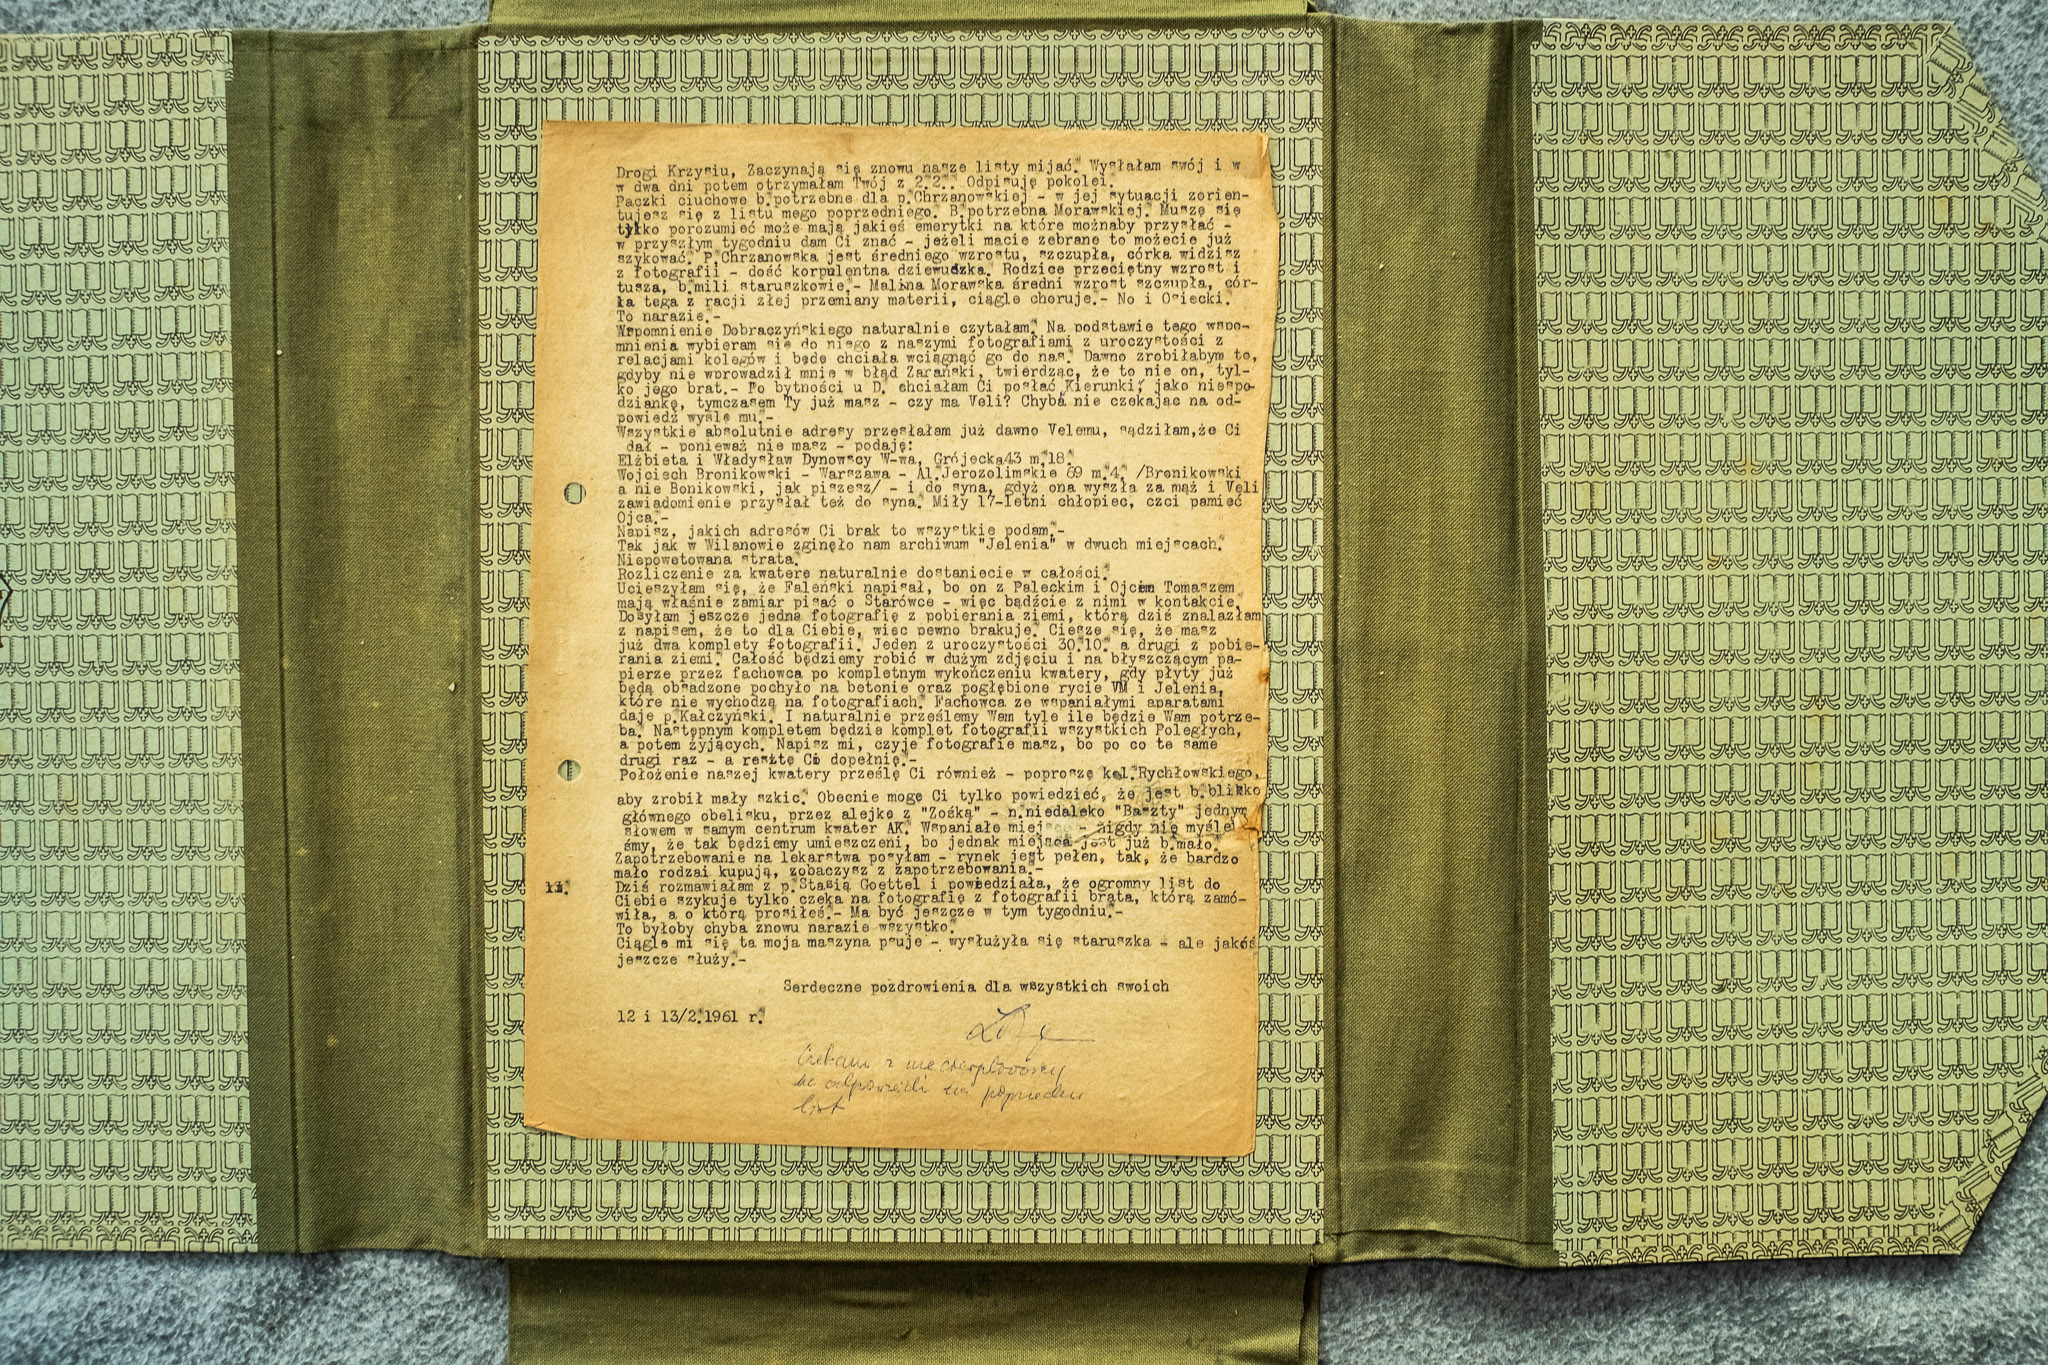 Drogi Krzysiu, Zaczynają się znowu nasze listy mijać. Wysłałam swój i w
w dwa dni potem otrzymałam Twój z 2.2.. Odpisuję pokolei.
Paczki ciuchowe b.potrzebne dla p.Chrzanowskiej - w jej sytuacji zorien-
tujesz się z listu mego poprzedniego. B.potrzebna Morawskiej. Muszę się
tylko porozumieć może mają jakieś emerytki na które możnaby przysłać -
w przyszłym tygodniu dam Ci znać - jeżeli macie zebrane to możecie już
szykować. P.Chrzanowska jest średniego wzrostu, szczupła, córka widzisz
z fotografii - dość korpulentna dziewuszka. Rodzice przeciętny wzrost i
tusza, b.mili staruszkowie.- Malina Morawska średni wzrost szczupła, cór-
ka tega z racji złej przemiany materii, ciągle choruje.- No i Osiecki.
To narazie.-
Wspomnienie Dobraczyńskiego naturalnie czytałam. Na podstawie tego wspo-
mnienia wybieram się do niego z naszymi fotografiami z uroczystości z
relacjami kolegów i będę chciała wciągnąć go do nas. Dawno zrobiłabym to,
gdyby nie wprowadził mnie w błąd Zarański, twierdząc, że to nie on, tyl-
ko jego brat.- Po bytności u D. chciałam Ci posłać "Kierunki" jako niespo-
dziankę, tymczasem Ty już masz - czy ma Veli? Chyba nie czekając na od-
powiedź wyślę mu.-
Wszystkie absolutnie adresy przesłałam już dawno Velemu, sądziłam,że Ci
dał - ponieważ nie masz - podaję:
Elżbieta i Władysław Dynowscy W-wa, Grójecka43 m.18.
Wojciech Bronikowski - Warszawa - Al.Jerozolimskie 69 m.4. /Bronikowski
a nie Bonikowski, jak piszesz/ - i do syna, gdyż ona wyszła za mąż i Veli
zawiadomienie przysłał też do syna. Miły 17-letni chłopiec, czci pamięć
Ojca.-
Napisz, jakich adresów Ci brak to wszystkie podam.-
Tak jak w Wilanowie zginęło nam archiwum "Jelenia" w dwuch miejscach.
Niepowetowana strata.
Rozliczenie za kwaterę naturalnie dostaniecie w całości.
Ucieszyłam się, że Faleński napisał, bo on z Paleckim i Ojcem Tomaszem
mają właśnie zamiar pisać o Starówce - więc bądźcie z nimi w kontakcie.
Dosyłam jeszcze jedną fotografię z pobierania ziemi, którą dziś znalazłam
z napisem, że to dla Ciebie, więc pewno brakuje. Cieszę się, że masz
już dwa komplety fotografii. Jeden z uroczystości 30.10. a drugi z pobie-
rania ziemi. Całość będziemy robić w dużym zdjęciu i na błyszczącym pa-
pierze przez fachowca po kompletnym wykończeniu kwatery, gdy płyty już
będą obsadzone pochyło na betonie oraz pogłębione rycie VM i Jelenia,
które nie wychodzą na fotografiach. Fachowca ze wspaniałymi aparatami
daje p.Kałczyński. I naturalnie prześlemy Wam tyle ile będzie Wam potrze-
ba. Następnym kompletem będzie komplet fotografii wszystkich Poległych,
a potem żyjących. Napisz mi, czyje fotografie masz, bo po co te same
drugi raz - a resztę Ci dopełnię.-
Położenie naszej kwatery prześlę Ci również - poproszę kol.Rychłowskiego,
aby zrobił mały szkic. Obecnie mogę Ci tylko powiedzieć, że jest b.blisko
głównego obelisku, przez alejkę z "Zośką" - n.niedaleko "Baszty" jednym
słowem w samym centrum kwater AK. Wspaniałe miejsce - nigdy nie myśleli
śmy, że tak będziemy umieszczeni, bo jednak miejsca jest już b.mało.
Zapotrzebowanie na lekarstwa posyłam - rynek jest pełen, tak, że bardzo
mało rodzai kupują, zobaczysz z zapotrzebowania.-
Dziś rozmawiałam z p.Stasią Goettel i powiedziała, że ogromny list do
Ciebie szykuje tylko czeka na fotografię z fotografii brata, którą zamó-
wiła, a o którą prosiłeś.- Ma być jeszcze w tym tygodniu.-
To byłoby chyba znowu narazie wszystko.
Ciągle mi się ta moja maszyna psuje - wysłużyła się staruszka - ale jakoś
jeszcze służy.-
Serdeczne pozdrowienia dla wszystkich swoich
12 i 13/2.1961 r.
Czekam z niecierpliwością
na odpowiedź na poprzedni
list